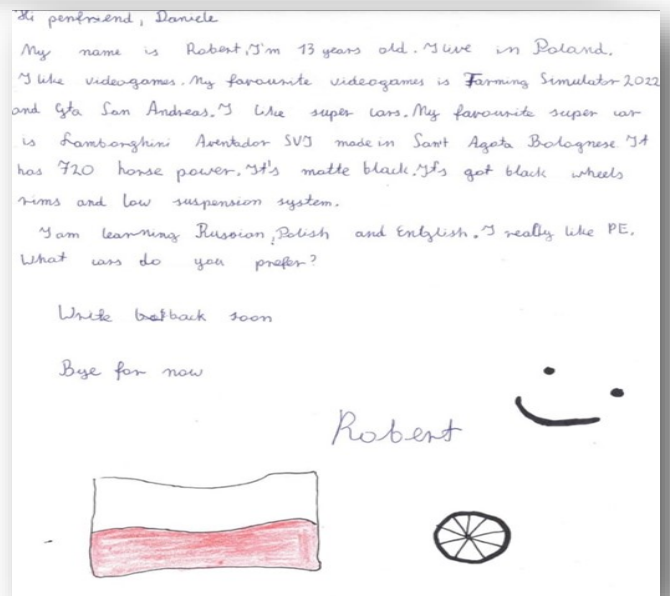 Hi penfriend, Daniele
My name is Robert, I'm 13 years old. I live in Poland.
I like videogames. My favourite videogames is Farming Simulator 2022
and Gta San Andreas. I like super cars. My favourite super car
is Lamborghini Aventador SVJ made in Sant Agata Bolognese It
has 720 horse power. It's matte black. It's got black wheels
rims and low suspension system.
I am learning Russian, Polish and English. I really like PE.
What cars do you prefer?
Write back soon
Bye for now
Robert